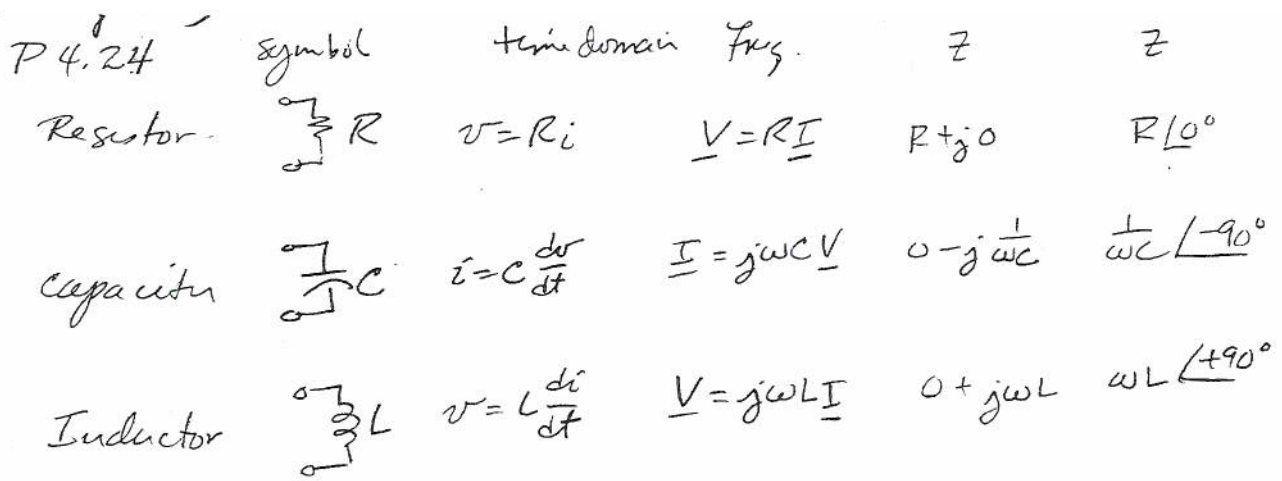 P 4.24 symbol time domain Freq. Z Z
Resistor R v=Ri V=RI R+j0 R∠0°
capacitor C i=C dv/dt I=jωCV 0-j 1/ωC 1/ωC ∠-90°
Inductor L v=L di/dt V=jωLI 0+jωL ωL ∠+90°